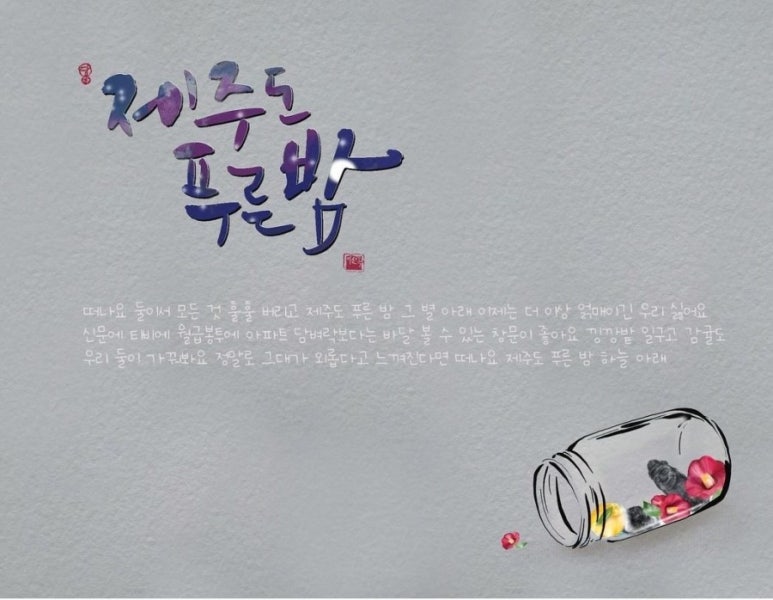 제주도
푸른밤
떠나요 둘이서 모든 것 훌훌 버리고 제주도 푸른 밤 그 별 아래 이제는 더 이상 얽매이긴 우리 싫어요
신문에 티비에 월급봉투에 아파트 담벼락보다는 바달 볼 수 있는 창문이 좋아요 낑깡밭 일구고 감귤도
우리 둘이 가꿔봐요 정말로 그대가 외롭다고 느껴진다면 떠나요 제주도 푸른 밤 하늘 아래